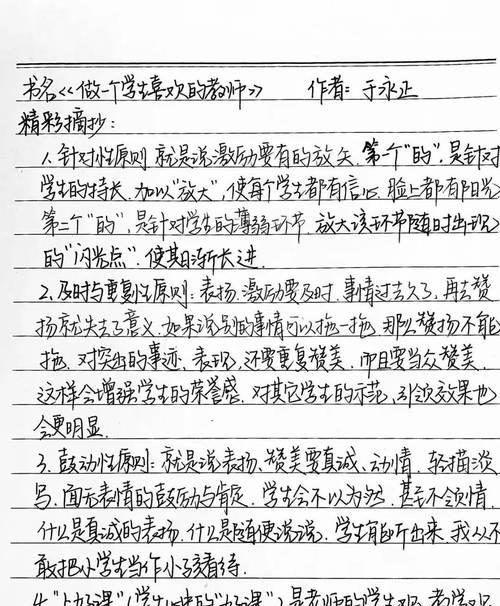 书名<<做一个学生喜欢的教师>> 作者：于永正
精彩摘抄：
1、针对性原则 就是说激励要有的放矢. 第一个"的", 是针对
学生的特长. 加以"放大", 使每个学生都有信心. 脸上都有阳光
第二个"的", 是针对学生的薄弱环节. 放大该环节随时出现
的"闪光点". 使其日渐长进.
2、及时与重复性原则：表扬. 激励要及时. 事情过去久了. 再去赞
扬就失去了意义. 如果说别的事情可以拖一拖. 那么赞扬不能
拖. 对突出的事迹、表现, 还要重复赞美. 而且要当众赞美.
这样会增强学生的荣誉感. 对其它学生的示范, 引领效果也
会更明显.
3、鼓动性原则：就是说表扬、赞美要真诚、动情. 轻描淡
写、面无表情的鼓励与肯定. 学生会不以为然. 甚至不领情.
什么是真诚的表扬. 什么是随便说说. 学生有能听出来. 我从不
敢把小学生当作小孩看待.